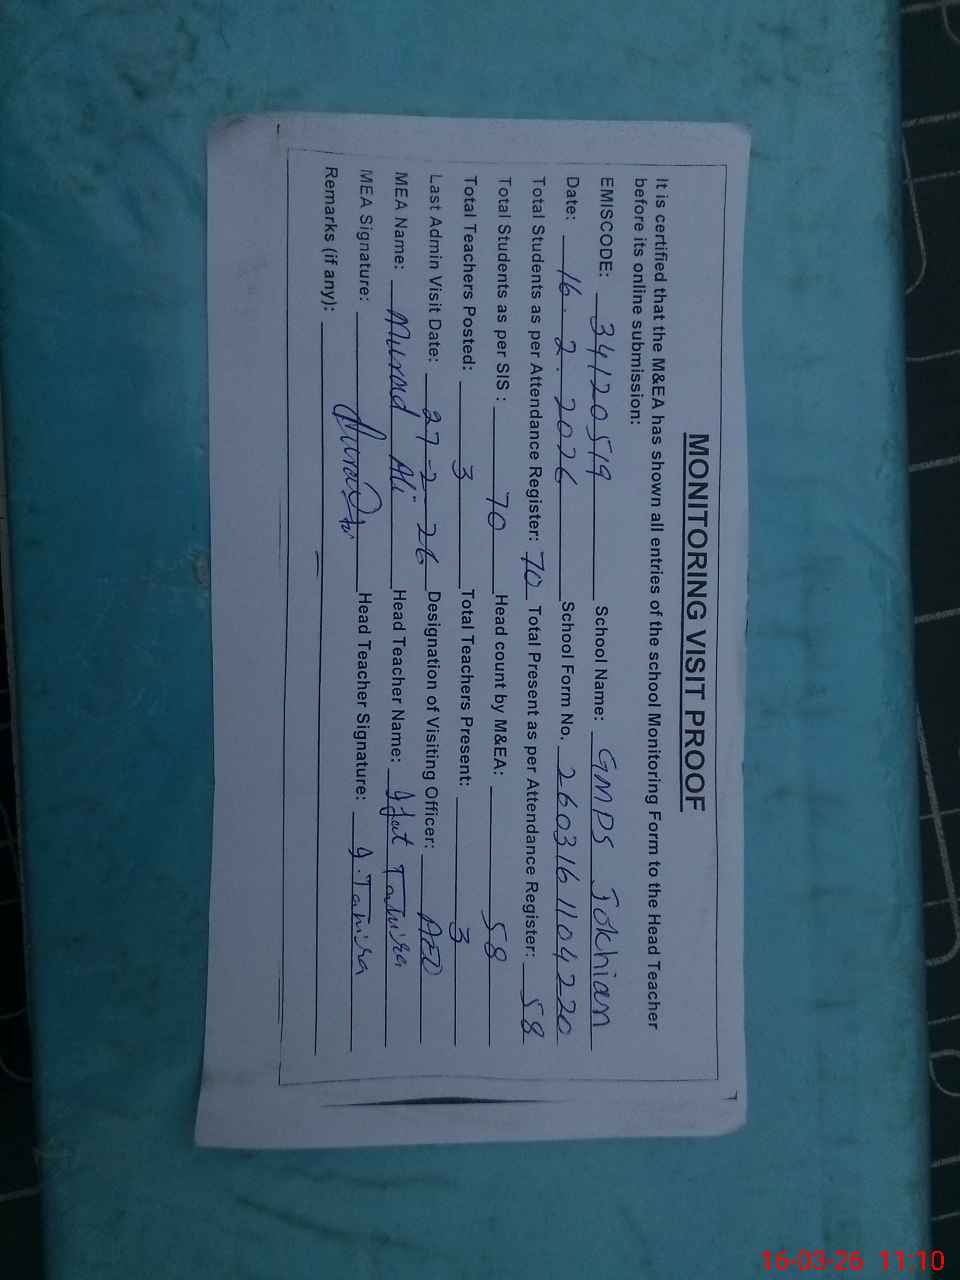 MONITORING VISIT PROOF
It is certified that the M&EA has shown all entries of the school Monitoring Form to the Head Teacher
before its online submission:
EMISCODE: 34120519 School Name: GMPS Jokhian
Date: 16.2.2026 School Form No. 2603161104220
Total Students as per Attendance Register: 70 Total Present as per Attendance Register: 58
Total Students as per SIS : 70 Head count by M&EA: 58
Total Teachers Posted: 3 Total Teachers Present: 3
Last Admin Visit Date: 27-2-26 Designation of Visiting Officer: AEO
MEA Name: Murad Ali Head Teacher Name: Ifat Tahira
MEA Signature: Head Teacher Signature: I.Tahira
Remarks (if any):
16-03-26 11:10